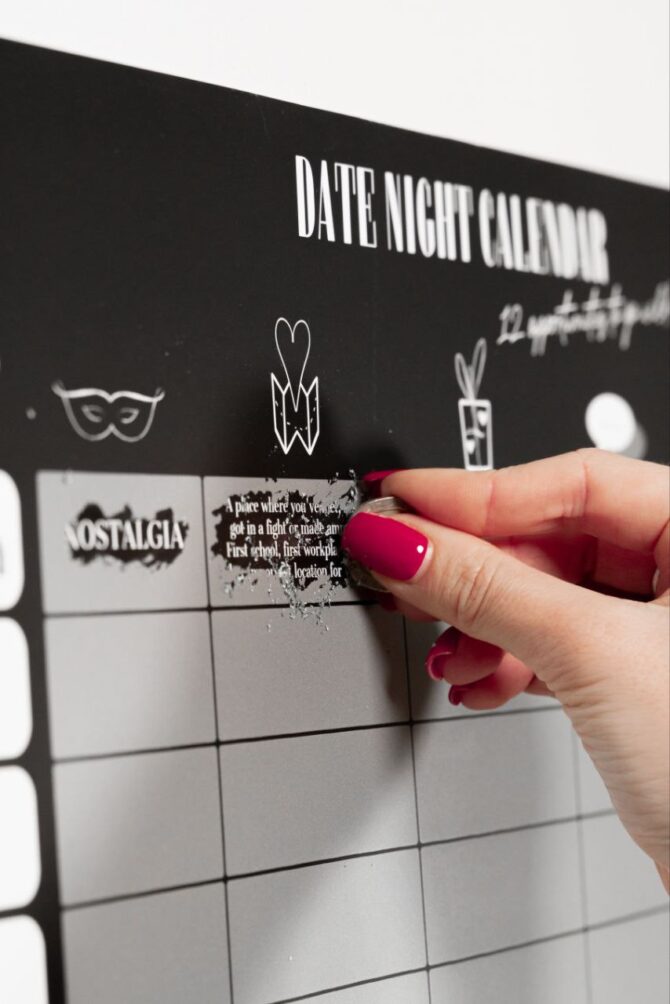 DATE NIGHT CALENDAR
12 opportunities to
NOSTALGIA
A place where you
got in a fight or made
First school, first
location for